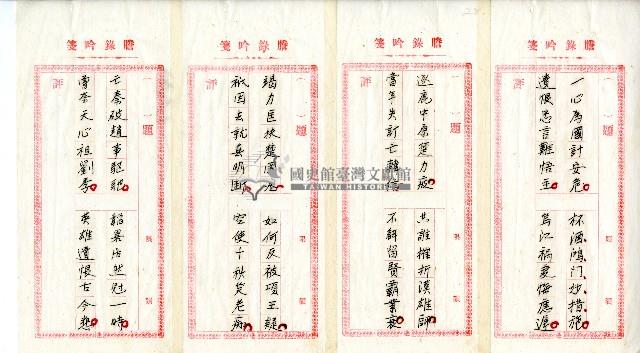 謄錄吟箋
題
一心為國計安危 杯酒鴻門妙措施
遺恨忠言難悟主 烏江禍變悔應遲
評
謄錄吟箋
題
逐鹿中原 力疲 共誰摧折漢雄師
當年失計亡韓信 不解留賢霸業衰
評
謄錄吟箋
題
竭力匡扶楚國危 如何反被項王疑
祇因去就無明斷 空使千秋笑老
評
謄錄吟箋
題
亡秦破趙事驅馳 韜畧居然冠一時
奈天心祖劉季 英雄遺恨古今悲
評
國史館臺灣文獻館
TAIWAN HISTORICA